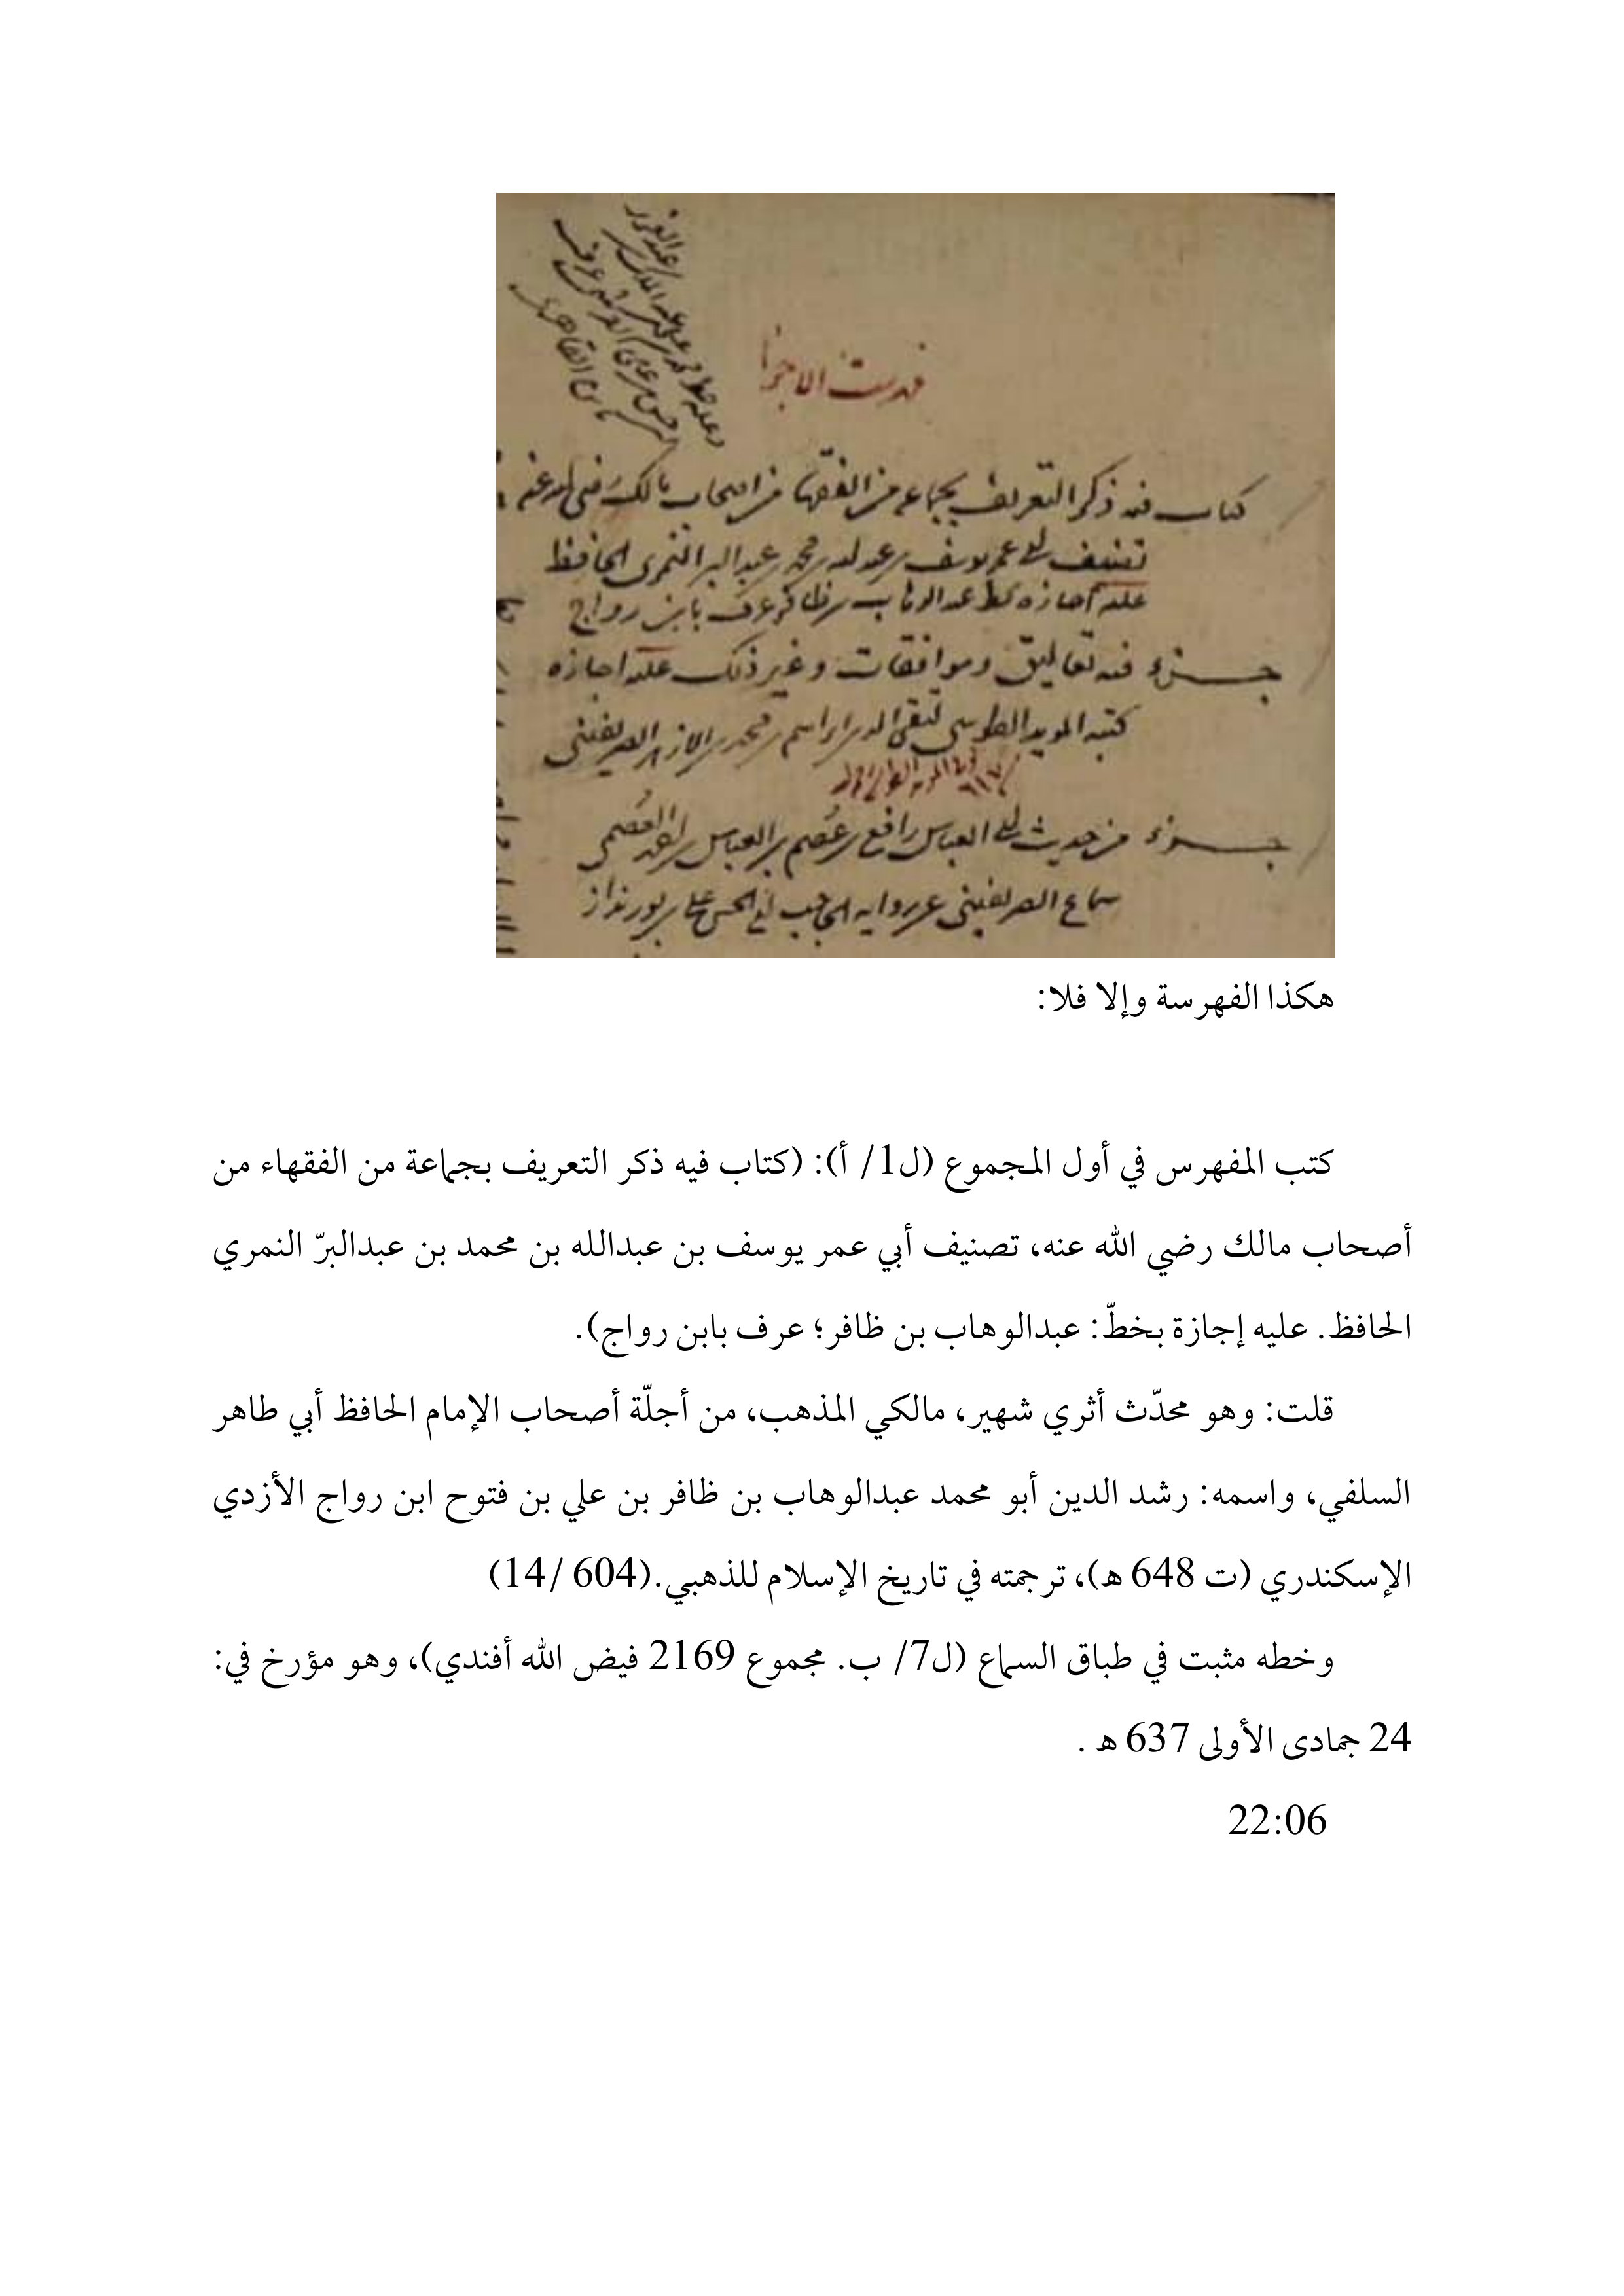 فهرست الاجزا
كتاب فيه ذكر التعريف بجماعة من الفقها من اصحاب مالك رضي الله عنه
تصنيف ابي عمر يوسف بن عبد الله بن محمد بن عبد البر النمري الحافظ
عليه اجازة بخط عبد الوهاب بن ظافر عرف بابن رواج
جزء فيه تعاليق وموافقات وغير ذلك عليه اجازه
كتبه المويد الطوسي لتقي الدين ابراهيم بن محمد بن الازهر الصريفيني
جزء من حديث ابي العباس رافع بن عُصم بن العباس بن احمد العُصمي
سماع الصريفيني
هكذا الفهرسة وإلا فلا:
كتب المفهرس في أول المجموع (ل1/ أ): (كتاب فيه ذكر التعريف بجماعة من الفقهاء من
أصحاب مالك رضي الله عنه، تصنيف أبي عمر يوسف بن عبدالله بن محمد بن عبدالبرّ النمري
الحافظ. عليه إجازة بخطّ: عبدالوهاب بن ظافر؛ عرف بابن رواج).
قلت: وهو محدّث أثري شهير، مالكي المذهب، من أجلّة أصحاب الإمام الحافظ أبي طاهر
السلفي، واسمه: رشد الدين أبو محمد عبدالوهاب بن ظافر بن علي بن فتوح ابن رواج الأزدي
الإسكندري (ت 648 ه)، ترجمته في تاريخ الإسلام للذهبي.(604 /14)
وخطه مثبت في طباق السماع (ل7/ ب. مجموع 2169 فيض الله أفندي)، وهو مؤرخ في:
24 جمادى الأولى 637 ه .
22:06